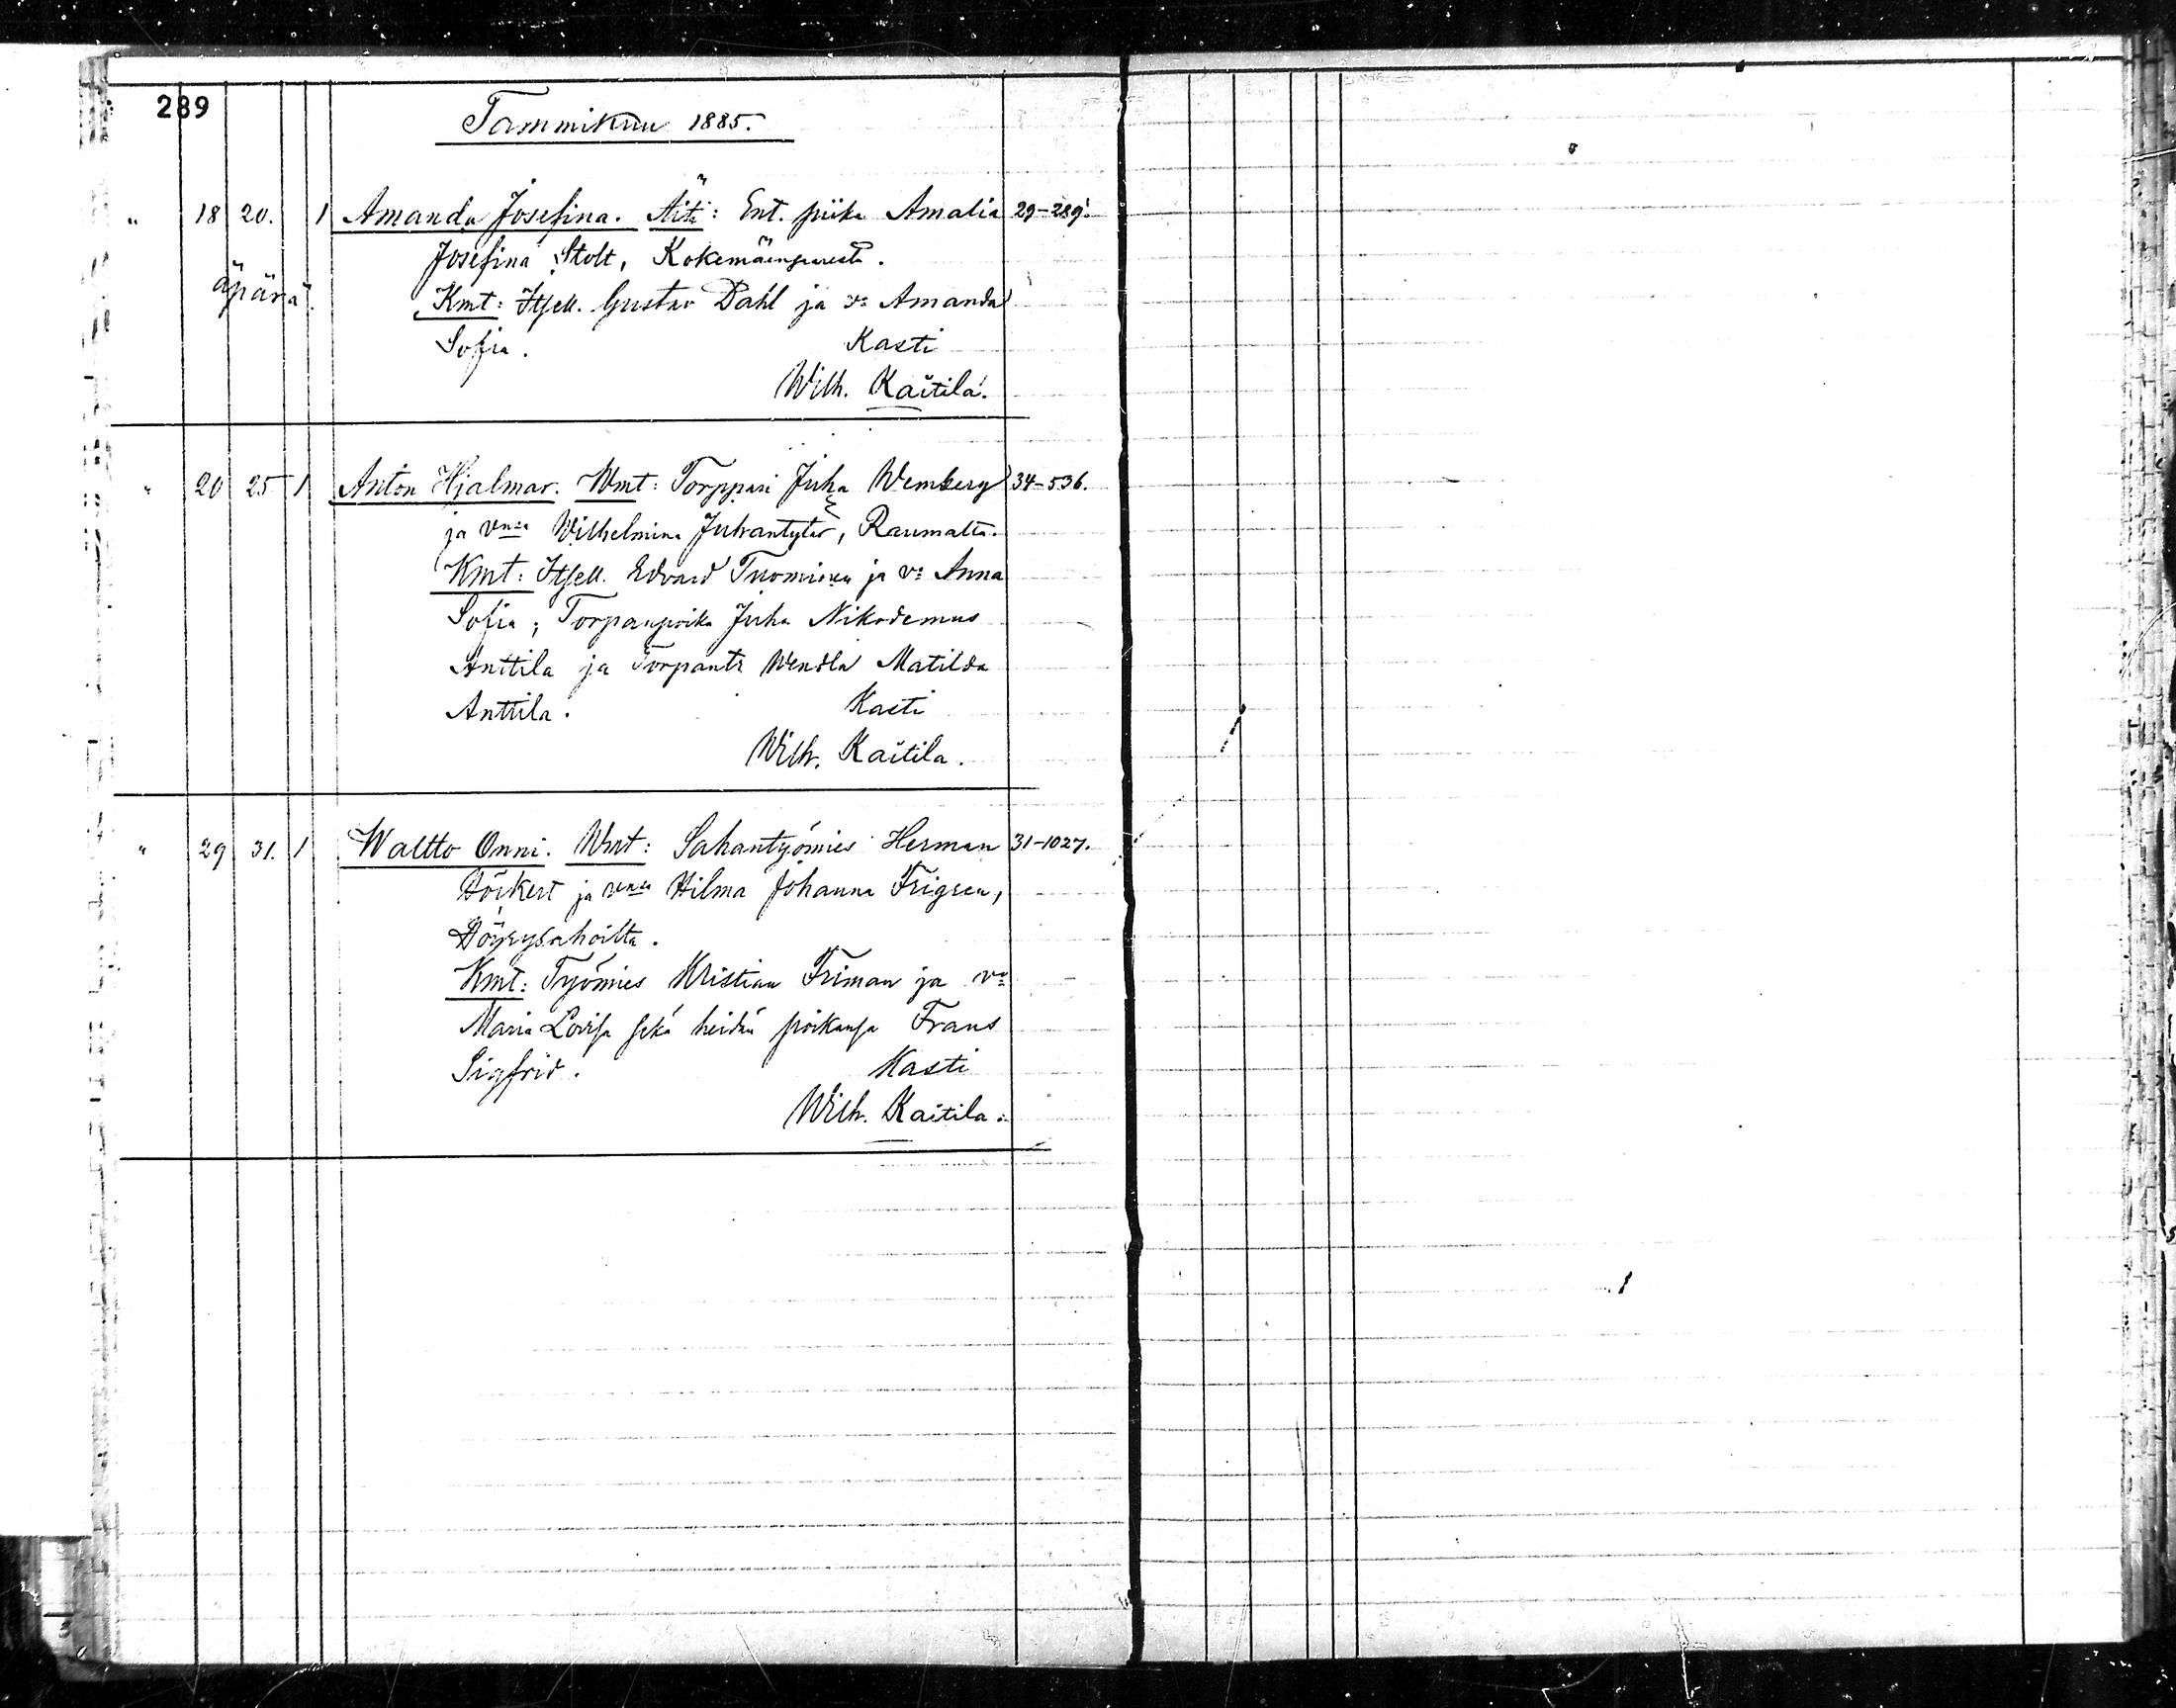 289
Tammikuu 1885.
" 18 20. 1 Amanda Josefina. Äiti: Ent. piika Amalia 29-289.
Josefina Stolt, Kokemäensuusta.
äpärä.
Kmt: Itsell. Gustav Dahl ja vo Amanda
Sofia. Kasti
Wilh. Kaitila.
" 20 25 1 Anton Hjalmar. Wmt: Torppari Juha Wemberg 34-536.
ja vnsa Wilhelmina Juhantytär, Raumalta.
Kmt: Itsell. Edvard Tuominen ja vo Anna
Sofia; Torpanpoika Juha Nikodemus
Anttila ja Torpantr Wendla Matilda
Anttila. Kasti
Wilh. Kaitila.
" 29 31. 1 Waltto Onni. Wmt: Sahantyömies Herman 31-1027.
ja vnsa Hilma Johanna
Höyrysahoilta.
Kmt: Työmies Kristian Friman ja vo
Maria Lovisa sekä heidän poikansa Frans
Sigfrid. Kasti
Wilh. Kaitila.